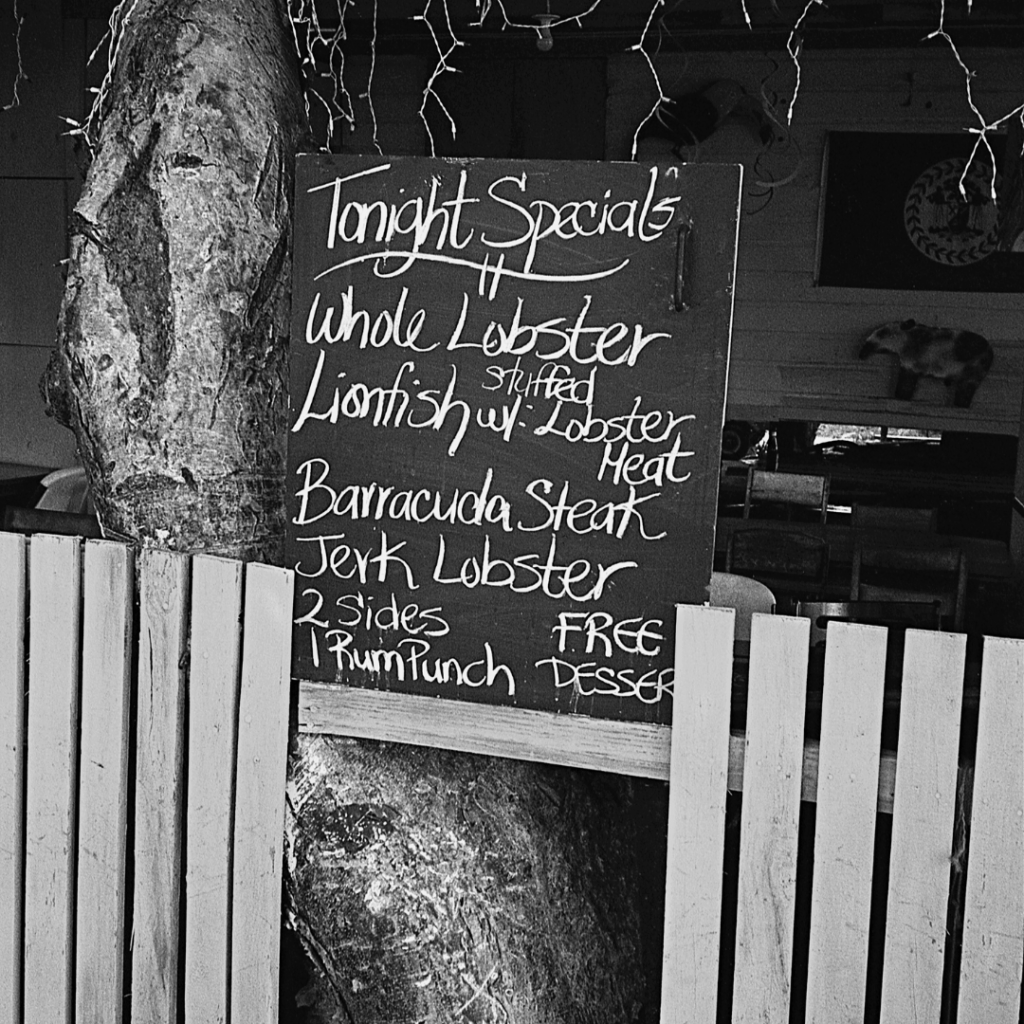 Tonight Specials
Whole Lobster
Lionfish w/: stuffed Lobster
Meat
Barracuda Steak
Jerk Lobster
2 Sides
1 Rum Punch
FREE
DESSER